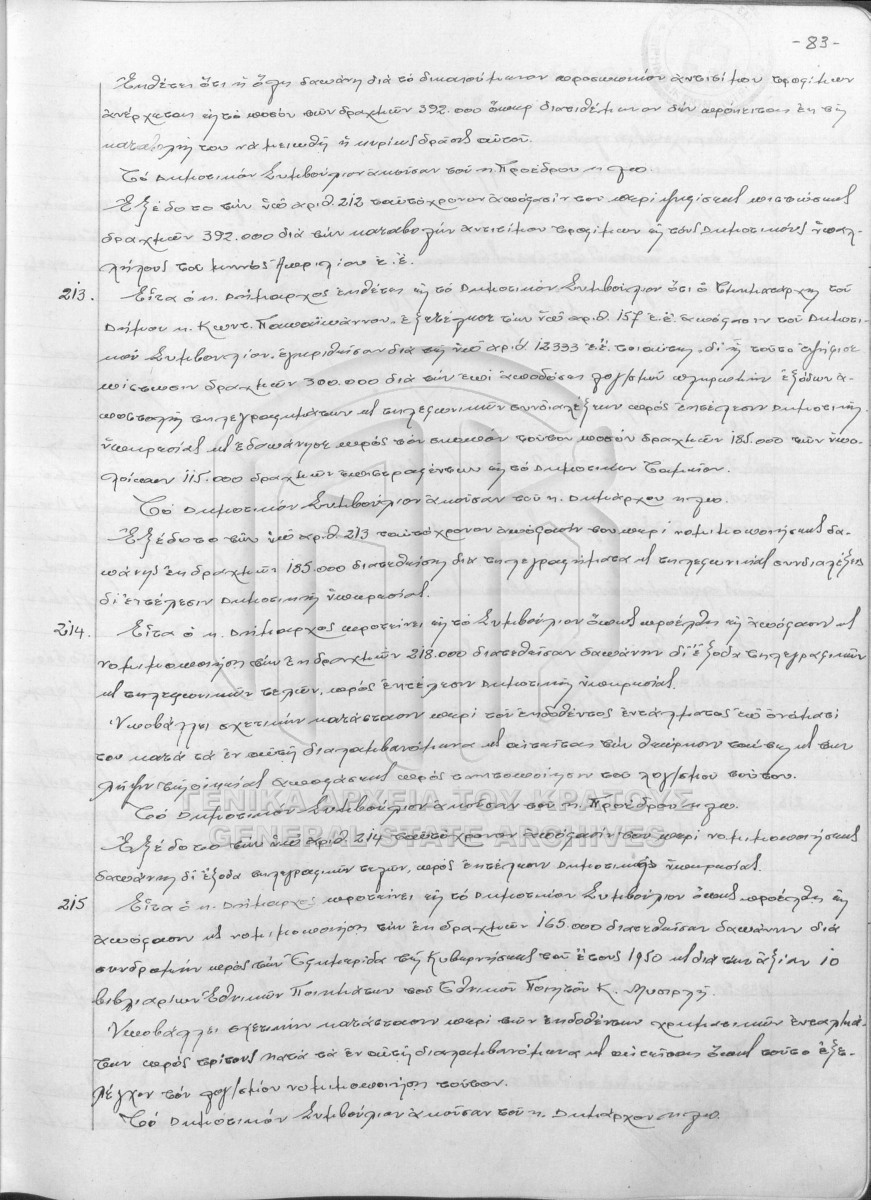 -83-
Ἐκθέτει ὅτι ἡ ὅλη δαπάνη διὰ τὸ δικαιούμενον προσωπικόν ἀντιτίμου τροφίμων
ἀνέρχεται εἰς τὸ ποσὸν τῶν δραχμῶν 392.000 ὅπερ διατιθέμενον δὲν πρόκειται ἐκ τῆς
καταβολῆς του νὰ μειωθῇ ἡ κυρίως δρᾶσις αὐτοῦ.
Τὸ Δημοτικὸν Συμβούλιον ἀκοῦσαν τοῦ κ. Προέδρου κ.λ.π.
Ἐξέδοτο τὴν ὑπ' ἀριθ. 212 ταὐτόχρονον ἀπόφασίν του περὶ ψηφίσεως πιστώσεως
δραχμῶν 392.000 διὰ τὴν καταβολὴν ἀντιτίμου τροφίμων εἰς τοὺς Δημοτικοὺς ὑπαλ-
λήλους τοῦ μηνὸς Ἀπριλίου ἐ.ἔ.
213. Εἶτα ὁ κ. Δήμαρχος ἐκθέτει εἰς τὸ Δημοτικὸν Συμβούλιον ὅτι ὁ Τμηματάρχης τοῦ
Δήμου κ. Κωντ. Παπαϊωάννου. ἐξετέλεσε τὴν ὑπ' ἀριθ. 157 ἐ.ἔ. ἀπόφασιν τοῦ Δημοτι-
κοῦ Συμβουλίου. ἐγκριθεῖσαν διὰ τῆς ὑπ' ἀριθ. 12393 ἐ.ἔ. τοιαύτης. δι' ἧς τοῦτο ἐψήφισε
πίστωσιν δραχμῶν 300.000 διὰ τὴν ἐπὶ ἀποδόσει λογ/σμοῦ πληρωμὴν ἐξόδων ἀ-
ποστολῆς τηλεγραφημάτων κ τηλεφωνικῶν συνδιαλέξεων πρὸς ἐκτέλεσιν Δημοτικῆς
ὑπηρεσίας κ ἐδαπάνησε πρὸς τὸν σκοπὸν τοῦτον ποσὸν δραχμῶν 185.000 τῶν ὑπο-
λοίπων 115.000 δραχμῶν ἐπιστραφέντων εἰς τὸ Δημοτικὸν Ταμεῖον.
Τὸ Δημοτικὸν Συμβούλιον ἀκοῦσαν τοῦ κ. Δημάρχου κ.λ.π.
Ἐξέδοτο τὴν ὑπ' ἀριθ. 213 ταὐτόχρονον ἀπόφασίν του περὶ νομιμοποιήσεως δα-
πάνης ἐκ δραχμῶν 185.000 διατεθείσης διὰ τηλεγραφήματα κ τηλεφωνικὰς συνδιαλέξεις
δι' ἐκτέλεσιν Δημοτικῆς ὑπηρεσίας.
214. Εἶτα ὁ κ. Δήμαρχος προτείνει εἰς τὸ Συμβούλιον ὅπως προέλθῃ εἰς ἀπόφασιν κ
νομιμοποιήσῃ τὴν ἐκ δραχμῶν 218.000 διατεθεῖσαν δαπάνην δι' ἔξοδα τηλεγραφικῶν
κ τηλεφωνικῶν τελῶν, πρὸς ἐκτέλεσιν Δημοτικῆς ὑπηρεσίας.
Ὑποβάλλει σχετικὴν κατάστασιν περὶ τοῦ ἐκδοθέντος ἐντάλματος ἐπ' ὀνόματί
του κατὰ τὰ ἐν αὐτῇ διαλαμβανόμενα κ αἰτεῖται τὴν θεώρησιν ταύτης κ τὴν
λῆψιν τῆς οἰκείας ἀποφάσεως πρὸς τακτοποίησιν τοῦ λογ/σμοῦ τούτου.
Τὸ Δημοτικὸν Συμβούλιον ἀκοῦσαν τοῦ κ. Προέδρου κ.λ.π.
Ἐξέδοτο τὴν ὑπ' ἀριθ. 214 ταὐτόχρονον ἀπόφασίν του περὶ νομιμοποιήσεως
δαπάνης δι' ἔξοδα τηλεγραφικῶν τελῶν, πρὸς ἐκτέλεσιν Δημοτικῆς ὑπηρεσίας.
215 Εἶτα ὁ κ. Δήμαρχος προτείνει εἰς τὸ Δημοτικὸν Συμβούλιον ὅπως προέλθῃ εἰς
ἀπόφασιν κ νομιμοποιήσῃ τὴν ἐκ δραχμῶν 165.000 διατεθεῖσαν δαπάνην διὰ
συνδρομὴν πρὸς τὴν Ἐφημερίδα τῆς Κυβερνήσεως τοῦ ἔτους 1950 κ διὰ τὴν ἀξίαν 10
βιβλιαρίων Ἐθνικῶν Ποιημάτων τοῦ Ἐθνικοῦ Ποιητοῦ Κ.
Ὑποβάλλει σχετικὴν κατάστασιν περὶ τῶν ἐκδοθέντων χρηματικῶν ἐνταλμά-
των πρὸς τρίτους κατὰ τὰ ἐν αὐτῇ διαλαμβανόμενα κ αἰτεῖται ὅπως τοῦτο ἐξε-
λέγχον τὸν λογ/σμὸν νομιμοποιήσῃ τοῦτον.
Τὸ Δημοτικὸν Συμβούλιον ἀκοῦσαν τοῦ κ. Δημάρχου κ.λ.π.
ΓΕΝΙΚΑ ΑΡΧΕΙΑ ΤΟΥ ΚΡΑΤΟΥΣ
GENERAL STATE ARCHIVES